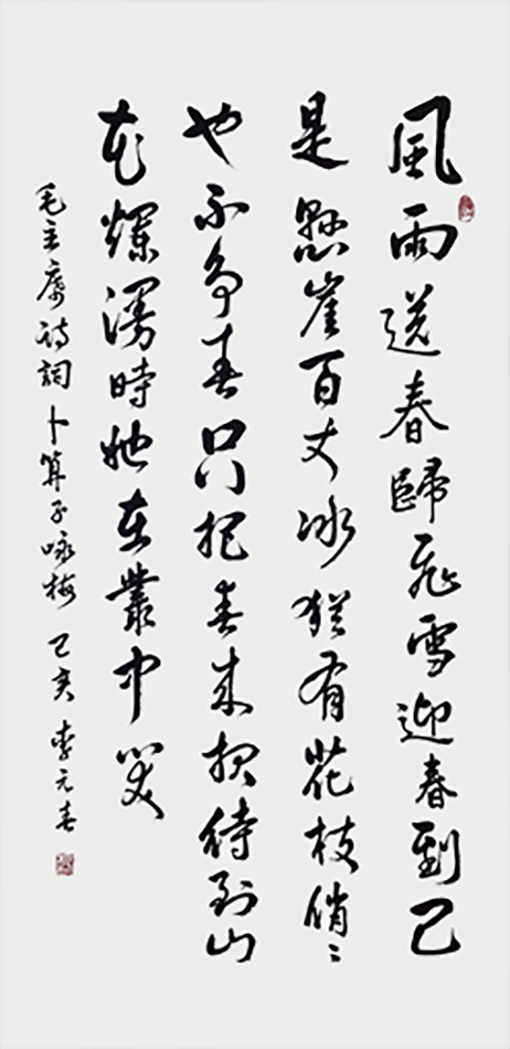 風雨送春歸飛雪迎春到已
是懸崖百丈冰猶有花枝俏〻
也不爭春只把春來報待到山
花爛漫時她在叢中笑
毛主席詩詞卜算子咏梅 己亥 李元春